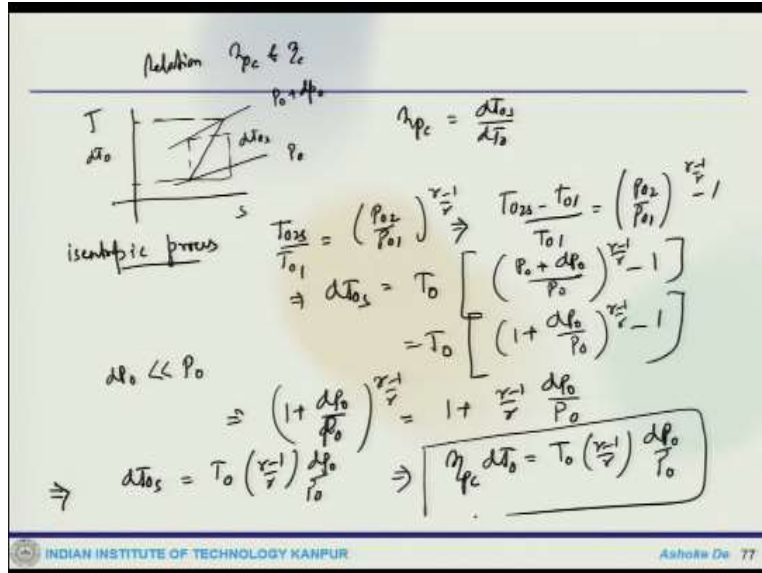 Relation η_pc & η_c
P₀ + dP₀
T
dT₀
dT₀s
P₀
S
η_pc = dT₀s/dT₀
isentropic process
T₀₂s/T₀₁ = (P₀₂/P₀₁)^((γ-1)/γ) ⇒ (T₀₂s - T₀₁)/T₀₁ = (P₀₂/P₀₁)^((γ-1)/γ) - 1
⇒ dT₀s = T₀ [((P₀ + dP₀)/P₀)^((γ-1)/γ) - 1]
= T₀ [(1 + dP₀/P₀)^((γ-1)/γ) - 1]
dP₀ << P₀
⇒ (1 + dP₀/P₀)^((γ-1)/γ) = 1 + (γ-1)/γ dP₀/P₀
⇒ dT₀s = T₀ ((γ-1)/γ) dP₀/P₀ ⇒ η_pc dT₀ = T₀ ((γ-1)/γ) dP₀/P₀
INDIAN INSTITUTE OF TECHNOLOGY KANPUR
Ashoke De 77